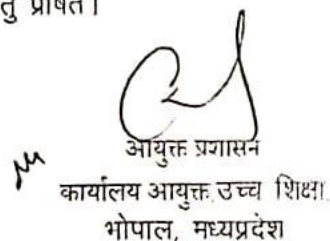 तु प्रेषित।
आयुक्त प्रशासन
कार्यालय आयुक्त उच्च शिक्षा
भोपाल, मध्यप्रदेश